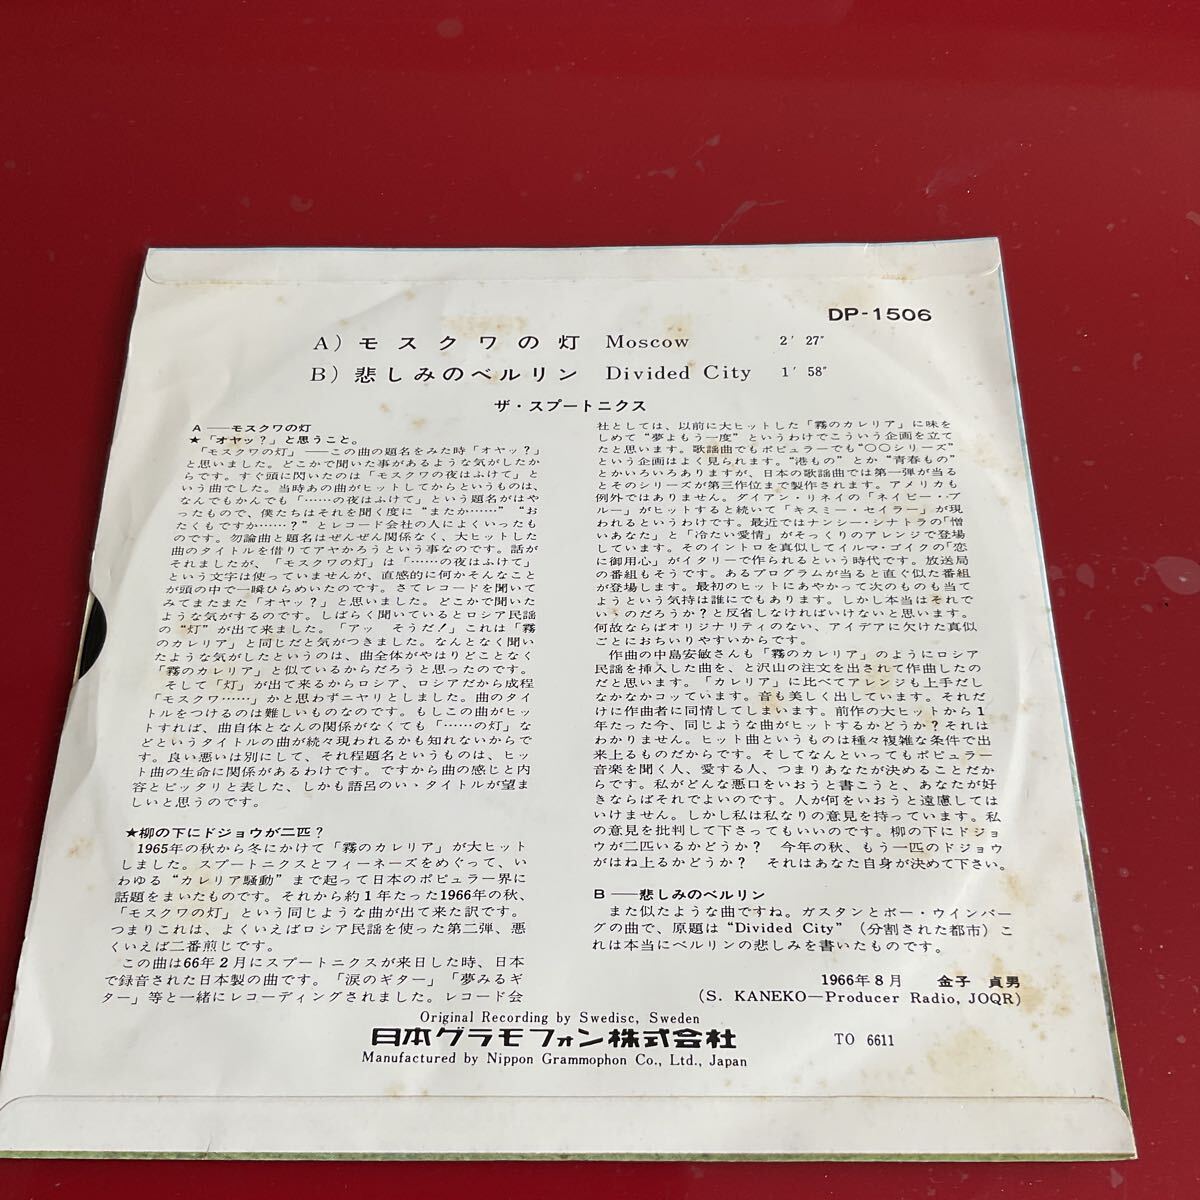 DP-1506
A) モスクワの灯 Moscow 2′27″
B) 悲しみのベルリン Divided City 1′58″
ザ・スプートニクス
A ── モスクワの灯
★「オヤッ?」と思うこと。
「モスクワの灯」──この曲の題名をみた時「オヤッ?」
と思いました。どこかで聞いた事があるような気がしたか
らです。すぐ頭に閃いたのは「モスクワの夜はふけて」と
いう曲でした。当時あの曲がヒットしてからというものは、
なんでもかんでも「……の夜はふけて」という題名がはや
ったもので、僕たちはそれを聞く度に“またか……”“お
たくもですか……?”とレコード会社の人によくいったも
のです。勿論曲と題名はぜんぜん関係なく、大ヒットした
曲のタイトルを借りてアヤかろうという事なのです。話が
それましたが、「モスクワの灯」は「……の夜はふけて」
という文字は使っていませんが、直感的に何かそんなこと
が頭の中で一瞬ひらめいたのです。さてレコードを聞いて
みてまたまた「オヤッ?」と思いました。どこかで聞いた
ような気がするのです。しばらく聞いているとロシア民謡
の“灯”が出て来ました。「アッ そうだ!」これは「霧
のカレリア」と同じだと気がつきました。なんとなく聞い
たような気がしたというのは、曲全体がやはりどことなく
「霧のカレリア」と似ているからだろうと思ったのです。
そして「灯」が出て来るからロシア、ロシアだから成程
「モスクワ……」かと思わずニヤリとしました。曲のタイ
トルをつけるのは難しいものなのです。もしこの曲がヒッ
トすれば、曲自体となんの関係がなくても「……の灯」な
どというタイトルの曲が続々現われるかも知れないからで
す。良い悪いは別にして、それ程題名というものは、ヒッ
ト曲の生命に関係があるわけです。ですから曲の感じと内
容とピッタリと表した、しかも語呂のい・タイトルが望ま
しいと思うのです。
★柳の下にドジョウが二匹?
1965年の秋から冬にかけて「霧のカレリア」が大ヒット
しました。スプートニクスとフィーネーズをめぐって、い
わゆる“カレリア騒動”まで起って日本のポピュラー界に
話題をまいたものです。それから約1年たった1966年の秋、
「モスクワの灯」という同じような曲が出て来た訳です。
つまりこれは、よくいえばロシア民謡を使った第二弾、悪
くいえば二番煎じです。
この曲は66年2月にスプートニクスが来日した時、日本
で録音された日本製の曲です。「涙のギター」「夢みるギ
ター」等と一緒にレコーディングされました。レコード会
社としては、以前に大ヒットした「霧のカレリア」に味を
しめて“夢よもう一度”というわけでこういう企画を立て
たと思います。歌謡曲でもポピュラーでも“〇〇シリーズ”
という企画はよく見られます。“港もの”とか“青春もの”
とかいろいろありますが、日本の歌謡曲では第一弾が当る
とそのシリーズが第三作位まで製作されます。アメリカも
例外ではありません。ダイアン・リネイの「ネイビー・ブ
ルー」がヒットすると続いて「キスミー・セイラー」が現
われるというわけです。最近ではナンシー・シナトラの「憎
いあなた」と「冷たい愛情」がそっくりのアレンジで登場
しています。そのイントロを真似してイルマ・ゴイクの「恋
に御用心」がイタリーで作られるという時代です。放送局
の番組もそうです。あるプログラムが当ると直ぐ似た番組
が登場します。最初のヒットにあやかって次のものも当て
ようという気持は誰にでもあります。しかし本当はそれで
いゝのだろうか?と反省しなければいけないと思います。
何故ならばオリジナリティのない、アイデアに欠けた真似
ごとにおちいりやすいからです。
作曲の中島安敏さんも「霧のカレリア」のようにロシア
民謡を挿入した曲を、と沢山の注文を出されて作曲したの
だと思います。「カレリア」に比べてアレンジも上手だし
なかなかコッています。音も美しく出しています。それだ
けに作曲者に同情してしまいます。前作の大ヒットから1
年たった今、同じような曲がヒットするかどうか?それは
わかりません。ヒット曲というものは種々複雑な条件で出
来上るものだからです。そしてなんといってもポピュラー
音楽を聞く人、愛する人、つまりあなたが決めることだか
らです。私がどんな悪口をいおうと書こうと、あなたが好
きならばそれでよいのです。人が何をいおうと遠慮しては
いけません。しかし私は私なりの意見を持っています。私
の意見を批判して下さってもいいのです。柳の下にドジョ
ウが二匹いるかどうか? 今年の秋、もう一匹のドジョウ
がはね上るかどうか? それはあなた自身が決めて下さい。
B ── 悲しみのベルリン
また似たような曲ですね。ガスタンとボー・ウインバー
グの曲で、原題は“Divided City”(分割された都市)こ
れは本当にベルリンの悲しみを書いたものです。
1966年8月 金子 貞男
(S. KANEKO—Producer Radio, JOQR)
Original Recording by Swedisc, Sweden
日本グラモフォン株式会社 TO 6611
Manufactured by Nippon Grammophon Co., Ltd., Japan